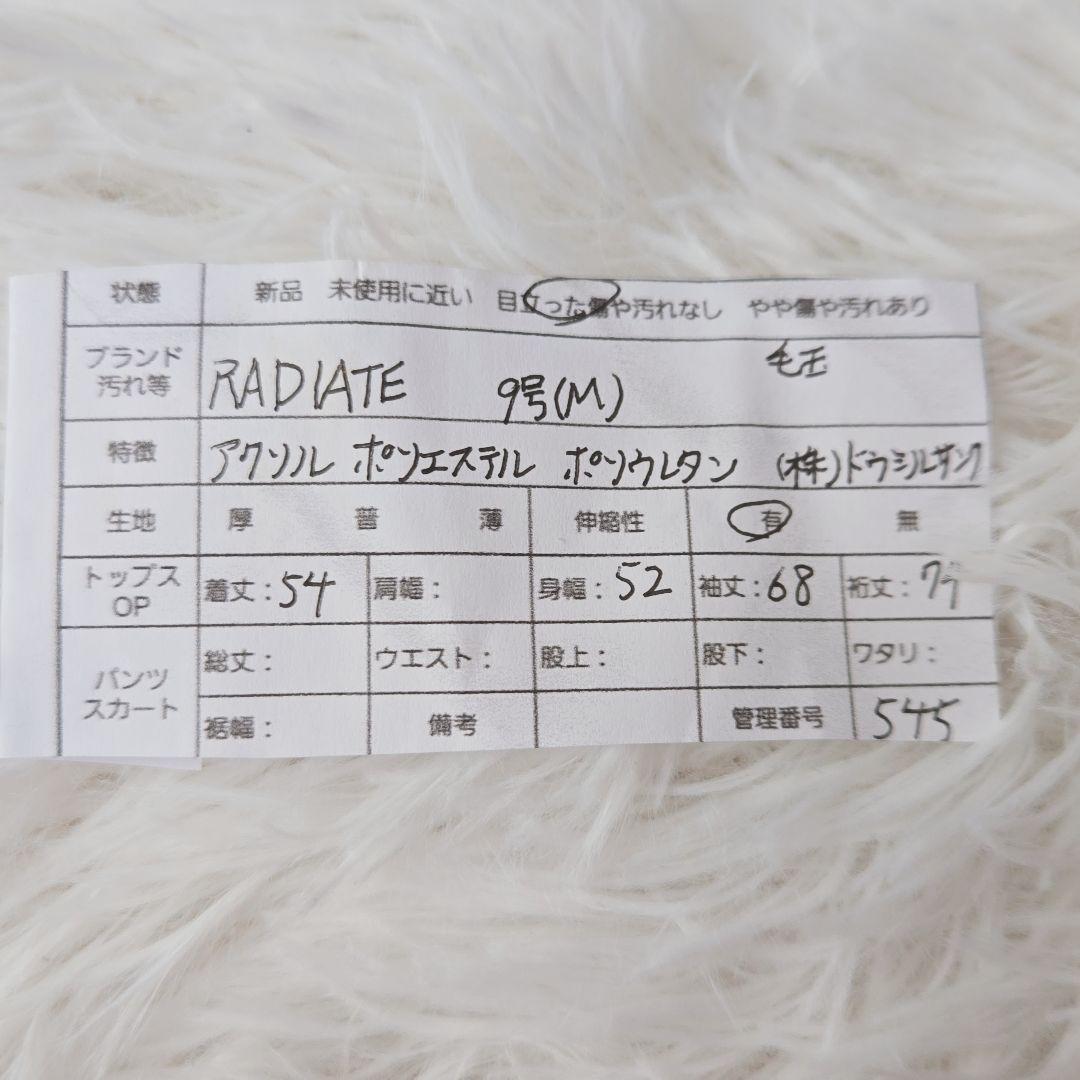 状態 新品 未使用に近い 目立った傷や汚れなし やや傷や汚れあり
ブランド 汚れ等 RADIATE 9号(M) 毛玉
特徴 アクリル ポリエステル ポリウレタン (株)ドウシルザング
生地 厚 普 薄 伸縮性 有 無
トップス OP 着丈:54 肩幅: 身幅:52 袖丈:68 裄丈:
パンツ スカート 総丈: ウエスト: 股上: 股下: ワタリ:
裾幅: 備考 管理番号 545